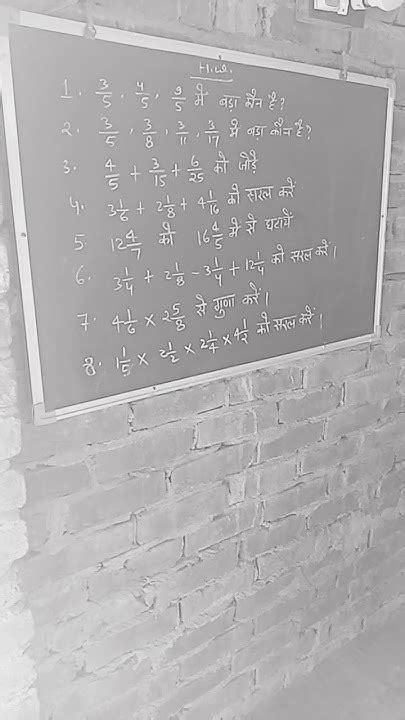 H.W.
1. 3/5, 4/5, 9/5 में बड़ा कौन है?
2. 3/5, 3/8, 3/11, 3/17 में बड़ा कौन है?
3. 4/5 + 3/15 + 6/25 को जोड़ें
4. 3 1/6 + 2 1/8 + 4 1/16 को सरल करें
5. 12 4/7 को 16 4/5 में से घटायें
6. 3 1/4 + 2 1/8 - 3 1/4 + 12 1/4 को सरल करें।
7. 4 1/6 × 2 5/8 से गुणा करें।
8. 1 1/5 × 2 1/2 × 2 1/4 × 4 1/2 को सरल करें।